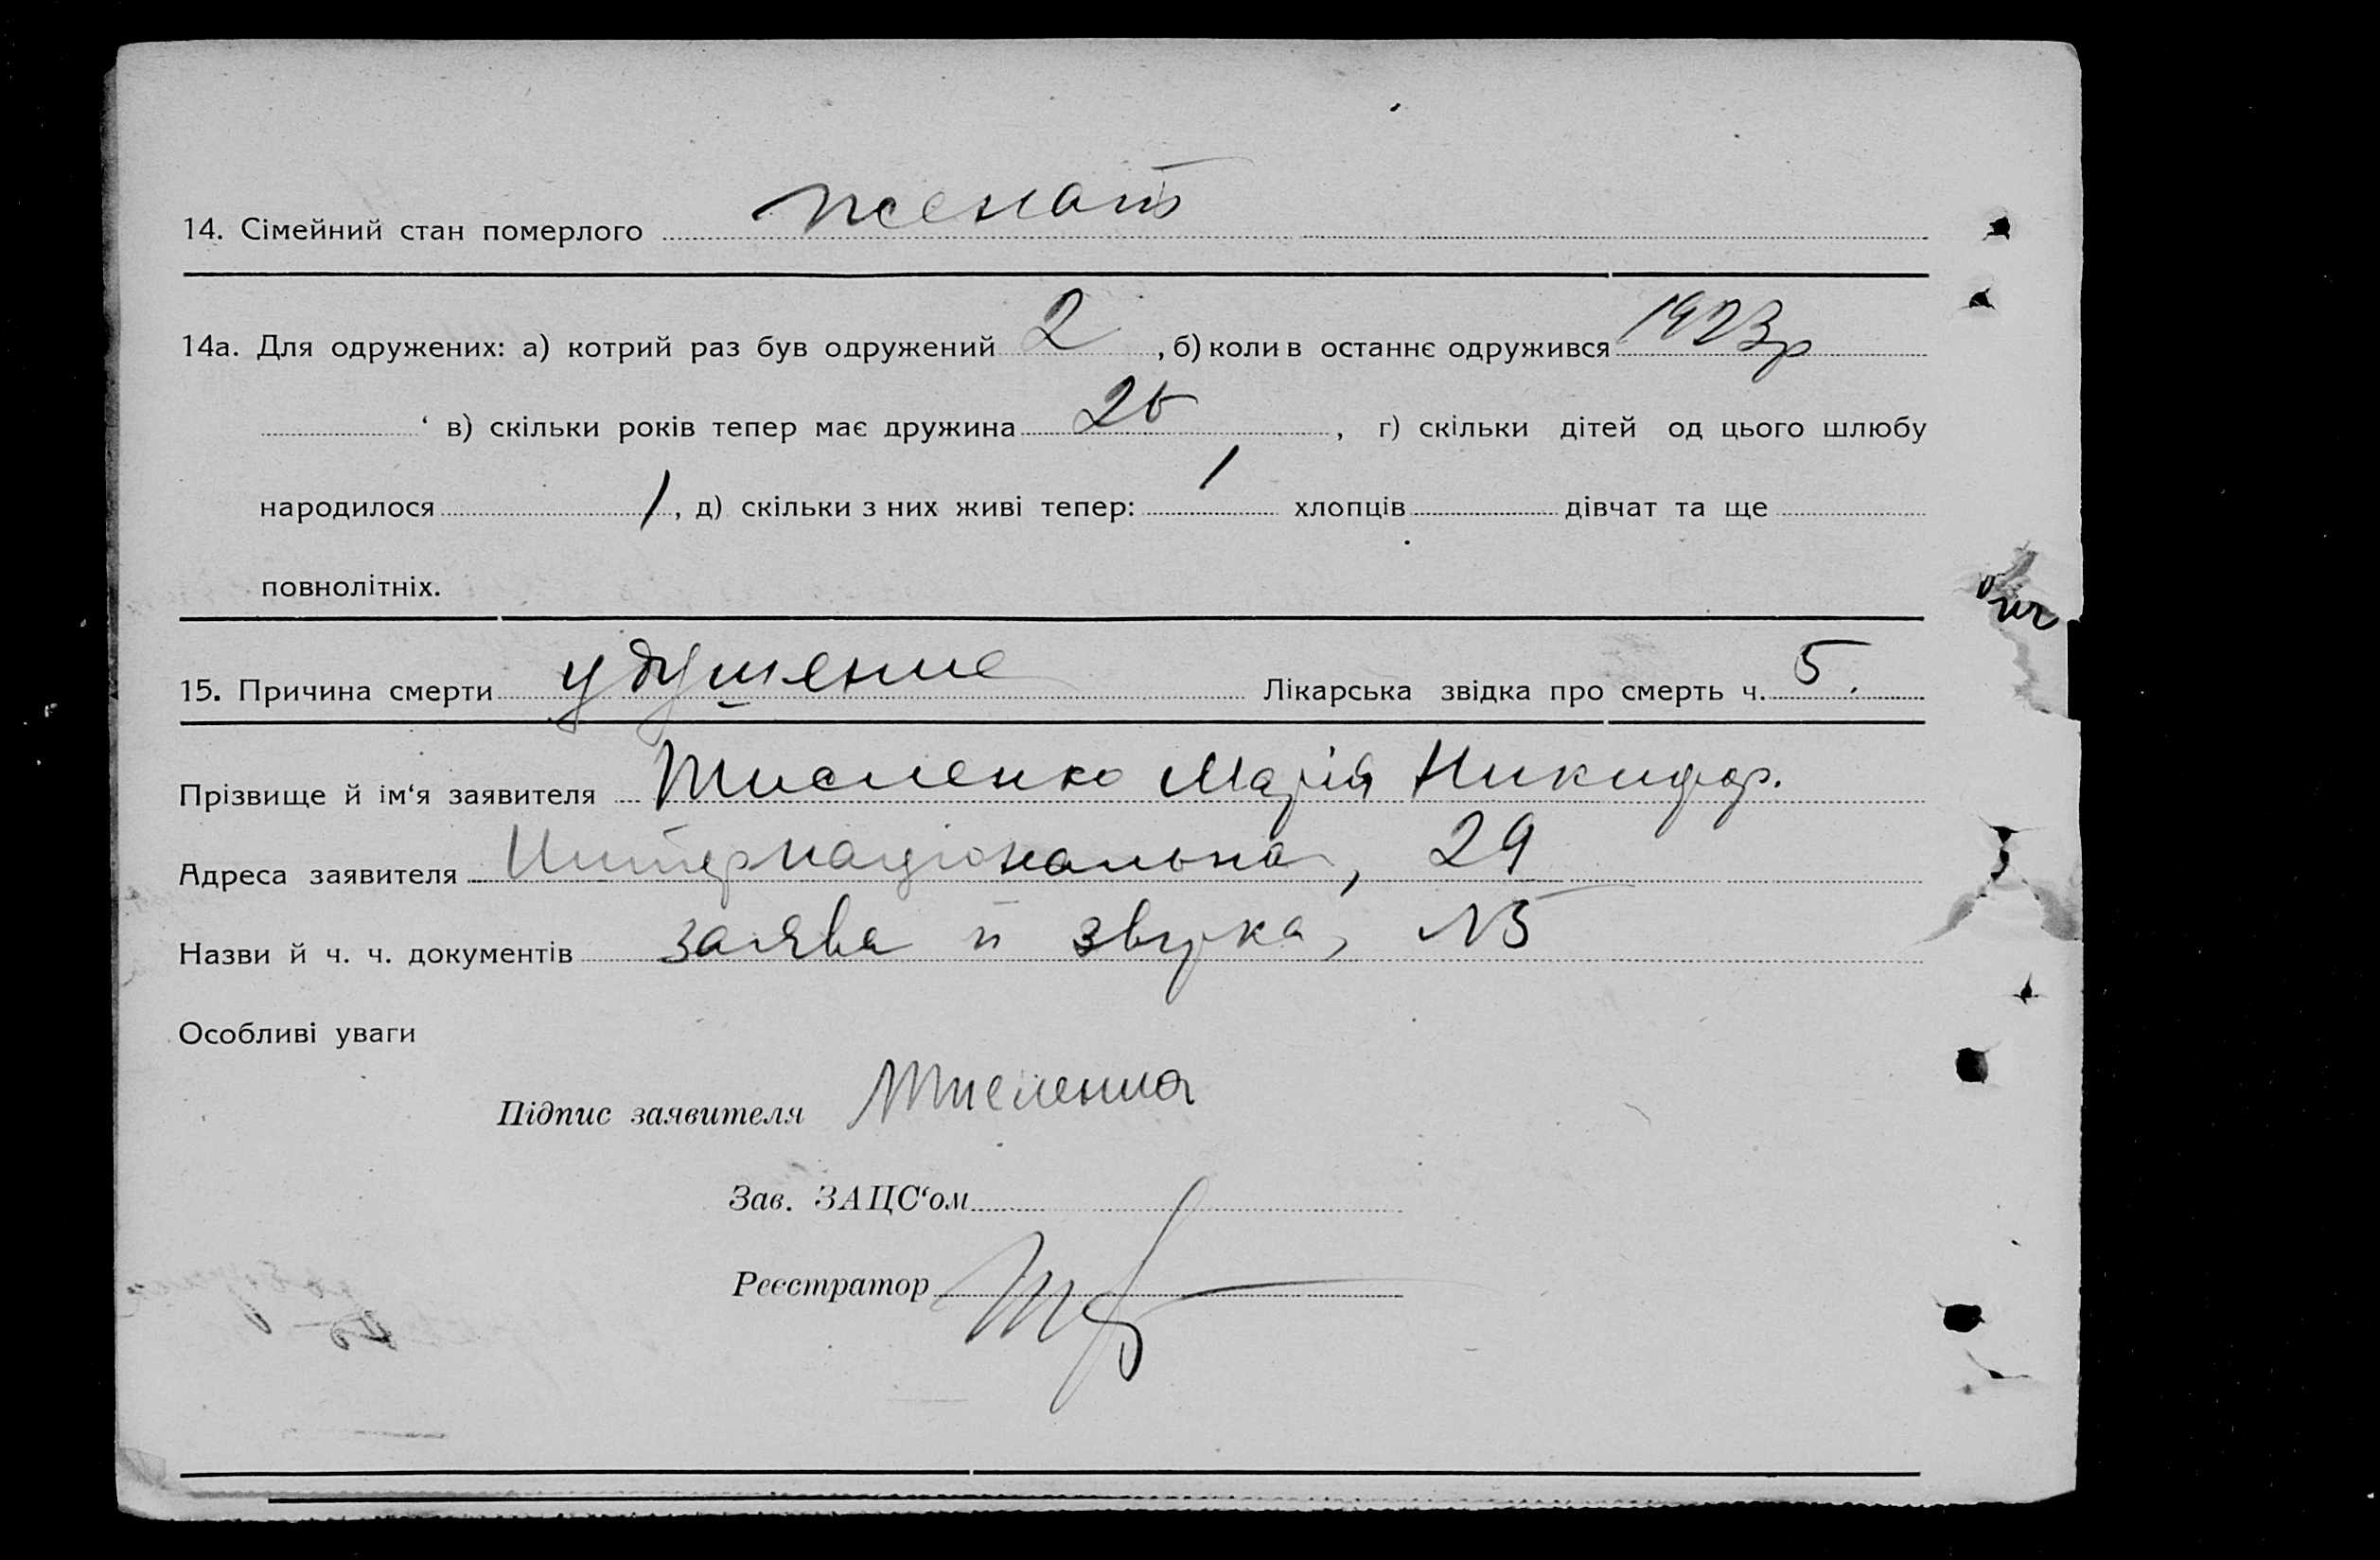 14. Сімейний стан померлого женат
14а. Для одружених: а) котрий раз був одружений 2, б) коли в останнє одружився 1923р
‘ в) скільки років тепер має дружина 25, г) скільки дітей од цього шлюбу
народилося 1, д) скільки з них живі тепер: 1 хлопців дівчат та ще
повнолітніх.
15. Причина смерти удушение Лікарська звідка про смерть ч. 5.
Прізвище й ім‘я заявителя Тисленко Марія Никифор.
Адреса заявителя Интернаціональна, 29
Назви й ч. ч. документів заява й N5
Особливі уваги
Підпис заявителя
Зав. ЗАЦС‘ом
Реєстратор